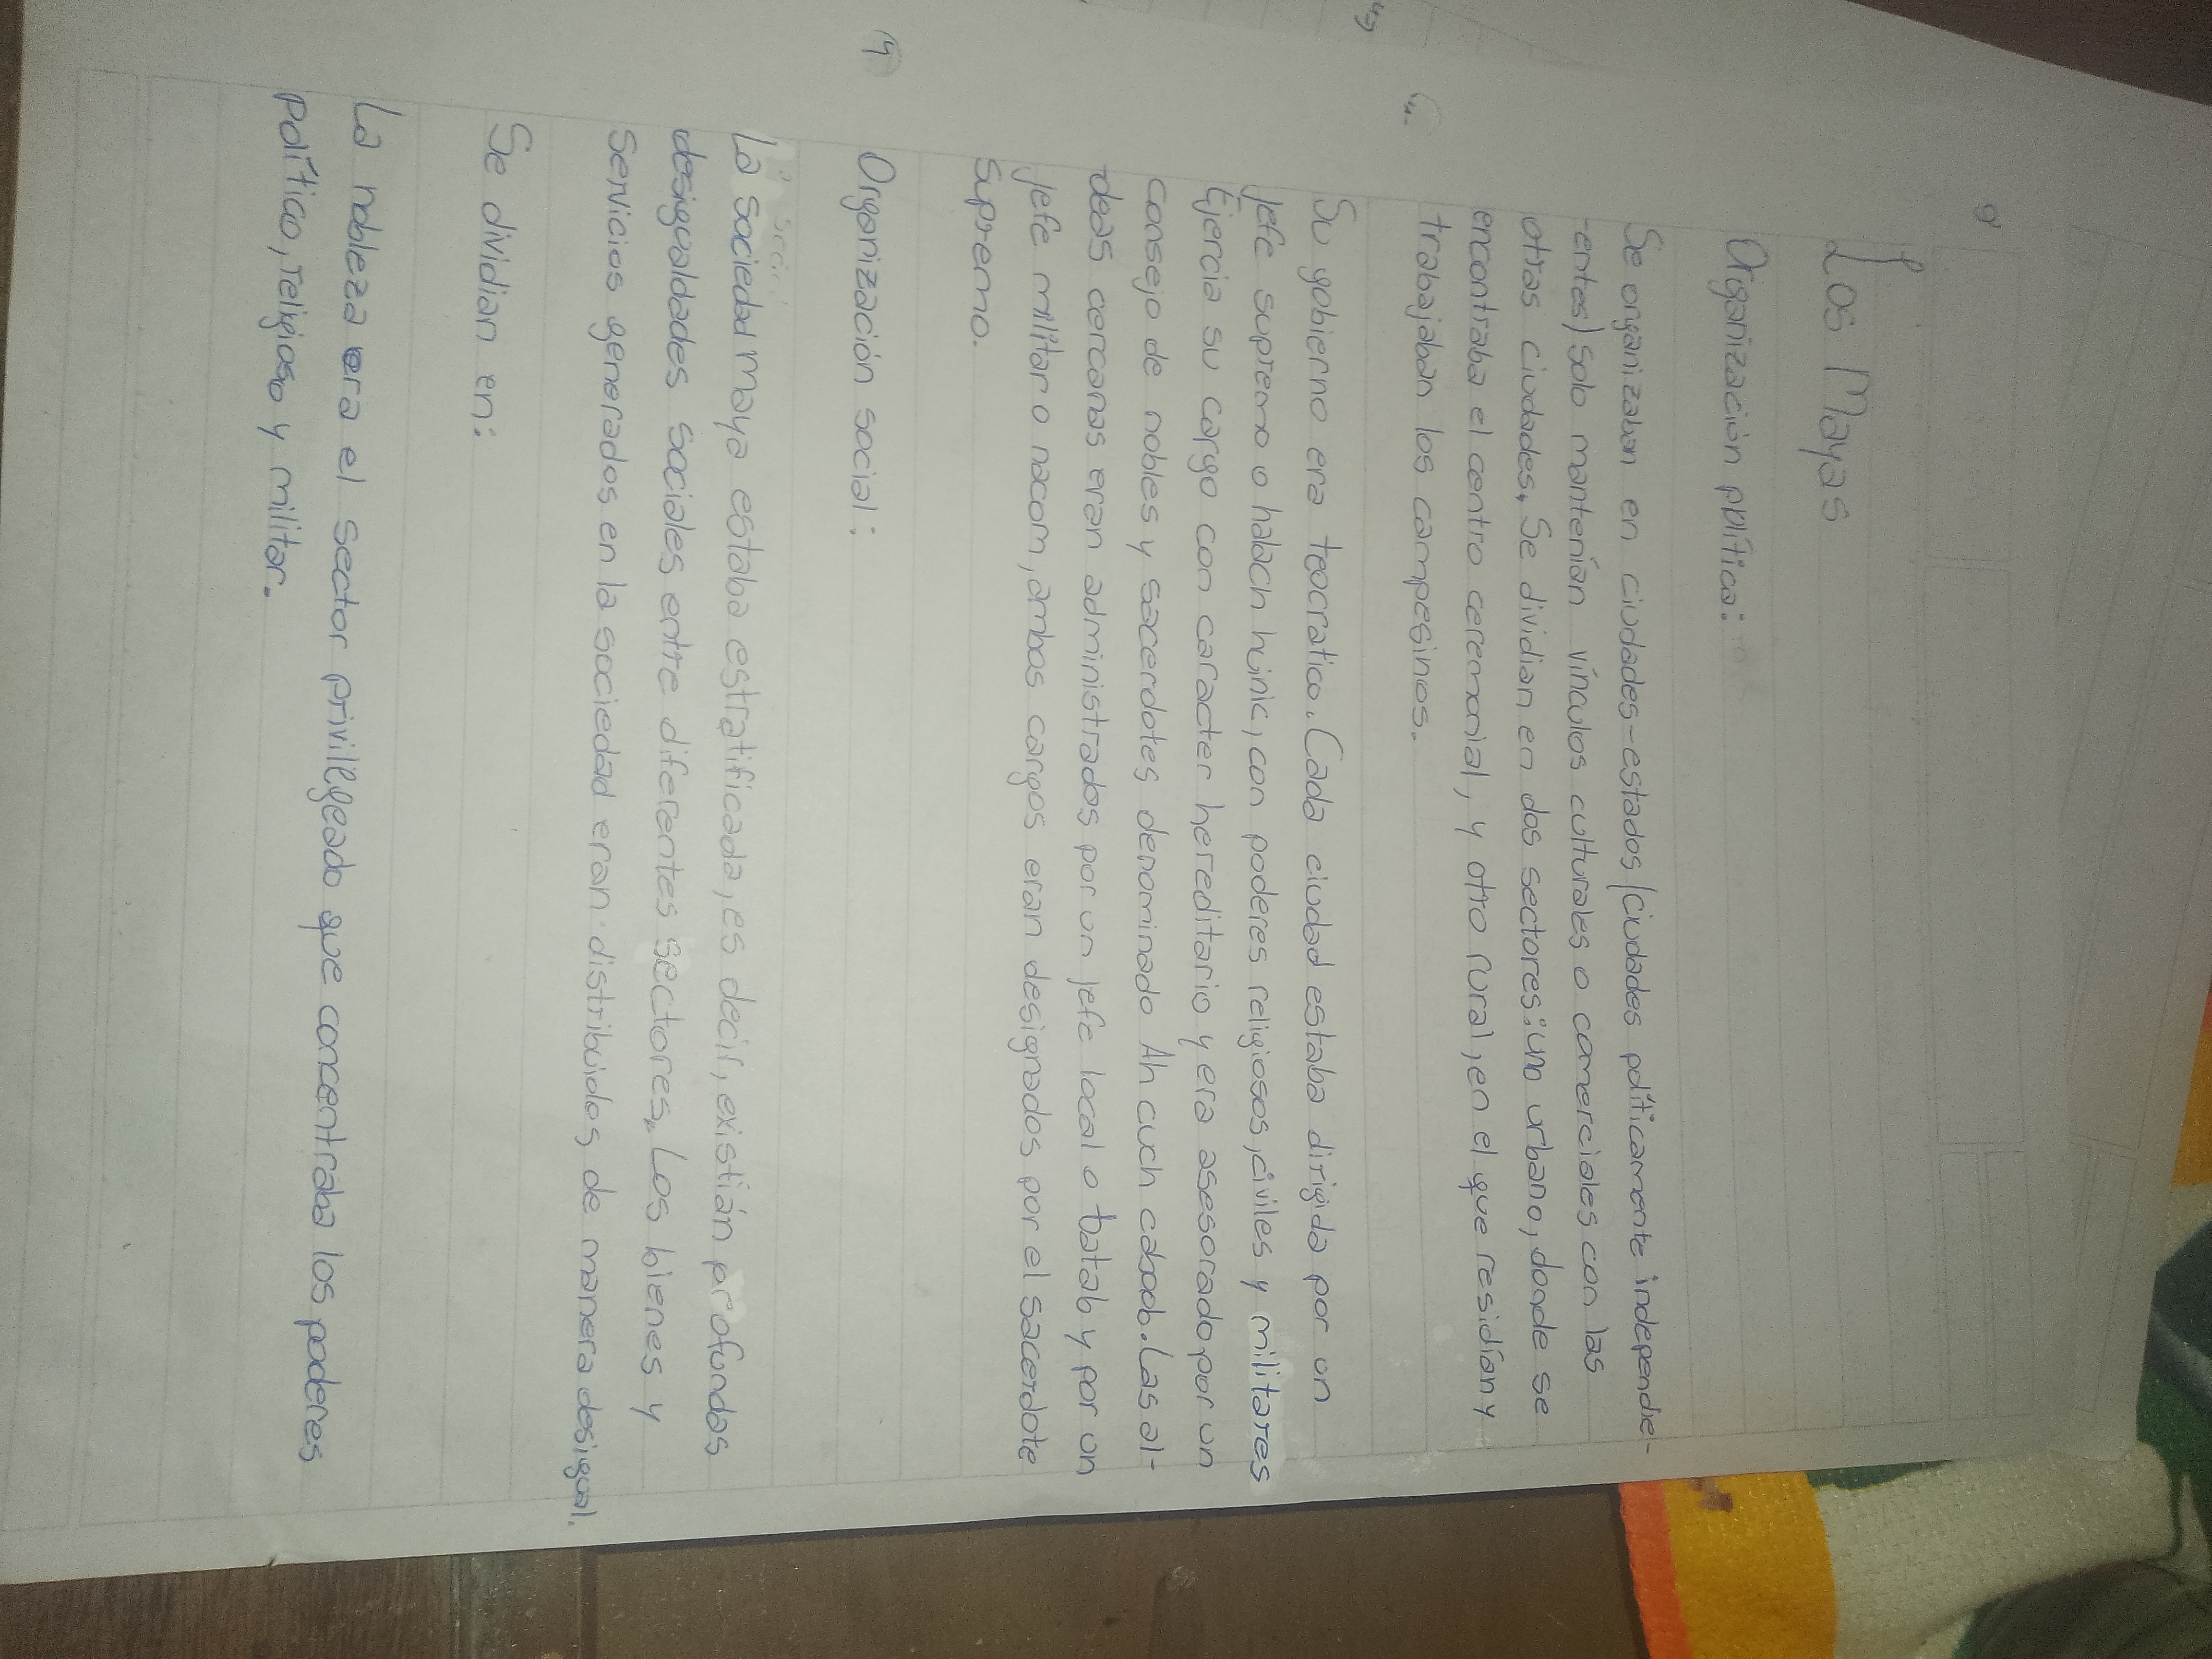 Los Mayas
Organización política:
Se organizaban en ciudades-estados (ciudades políticamente independie-
-entes) Solo mantenían vínculos culturales o comerciales con las
otras ciudades. Se dividian en dos sectores: uno urbano, donde se
encontraba el centro ceremonial, y otro rural, en el que residían y
trabajaban los campesinos.
Su gobierno era teocratico. Cada ciudad estaba dirigida por un
jefe supremo o halach huinic, con poderes religiosos, civiles y militares
Ejercia su cargo con caracter hereditario y era asesorado por un
consejo de nobles y sacerdotes denominado Ah cuch caboob. Las al-
-deas cercanas eran administrados por un jefe local o batab y por un
jefe militar o nacom, ambos cargos eran designados por el sacerdote
supremo.
Organización social:
La sociedad maya estaba estratificada, es decir, existían profundas
desigualdades sociales entre diferentes sectores. Los bienes y
servicios generados en la sociedad eran distribuidos de manera desigual.
Se dividian en:
La nobleza era el sector privilegeado que concentraba los poderes
político, religioso y militar.